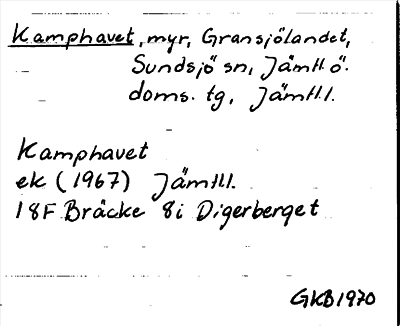 Kamphavet, myr, Gransjölandet,
Sundsjö sn, Jämtl. ö.
doms. tg, Jämtl.
Kamphavet
ek (1967) Jämtl.
18F Bräcke 8i Digerberget
GKB 1970